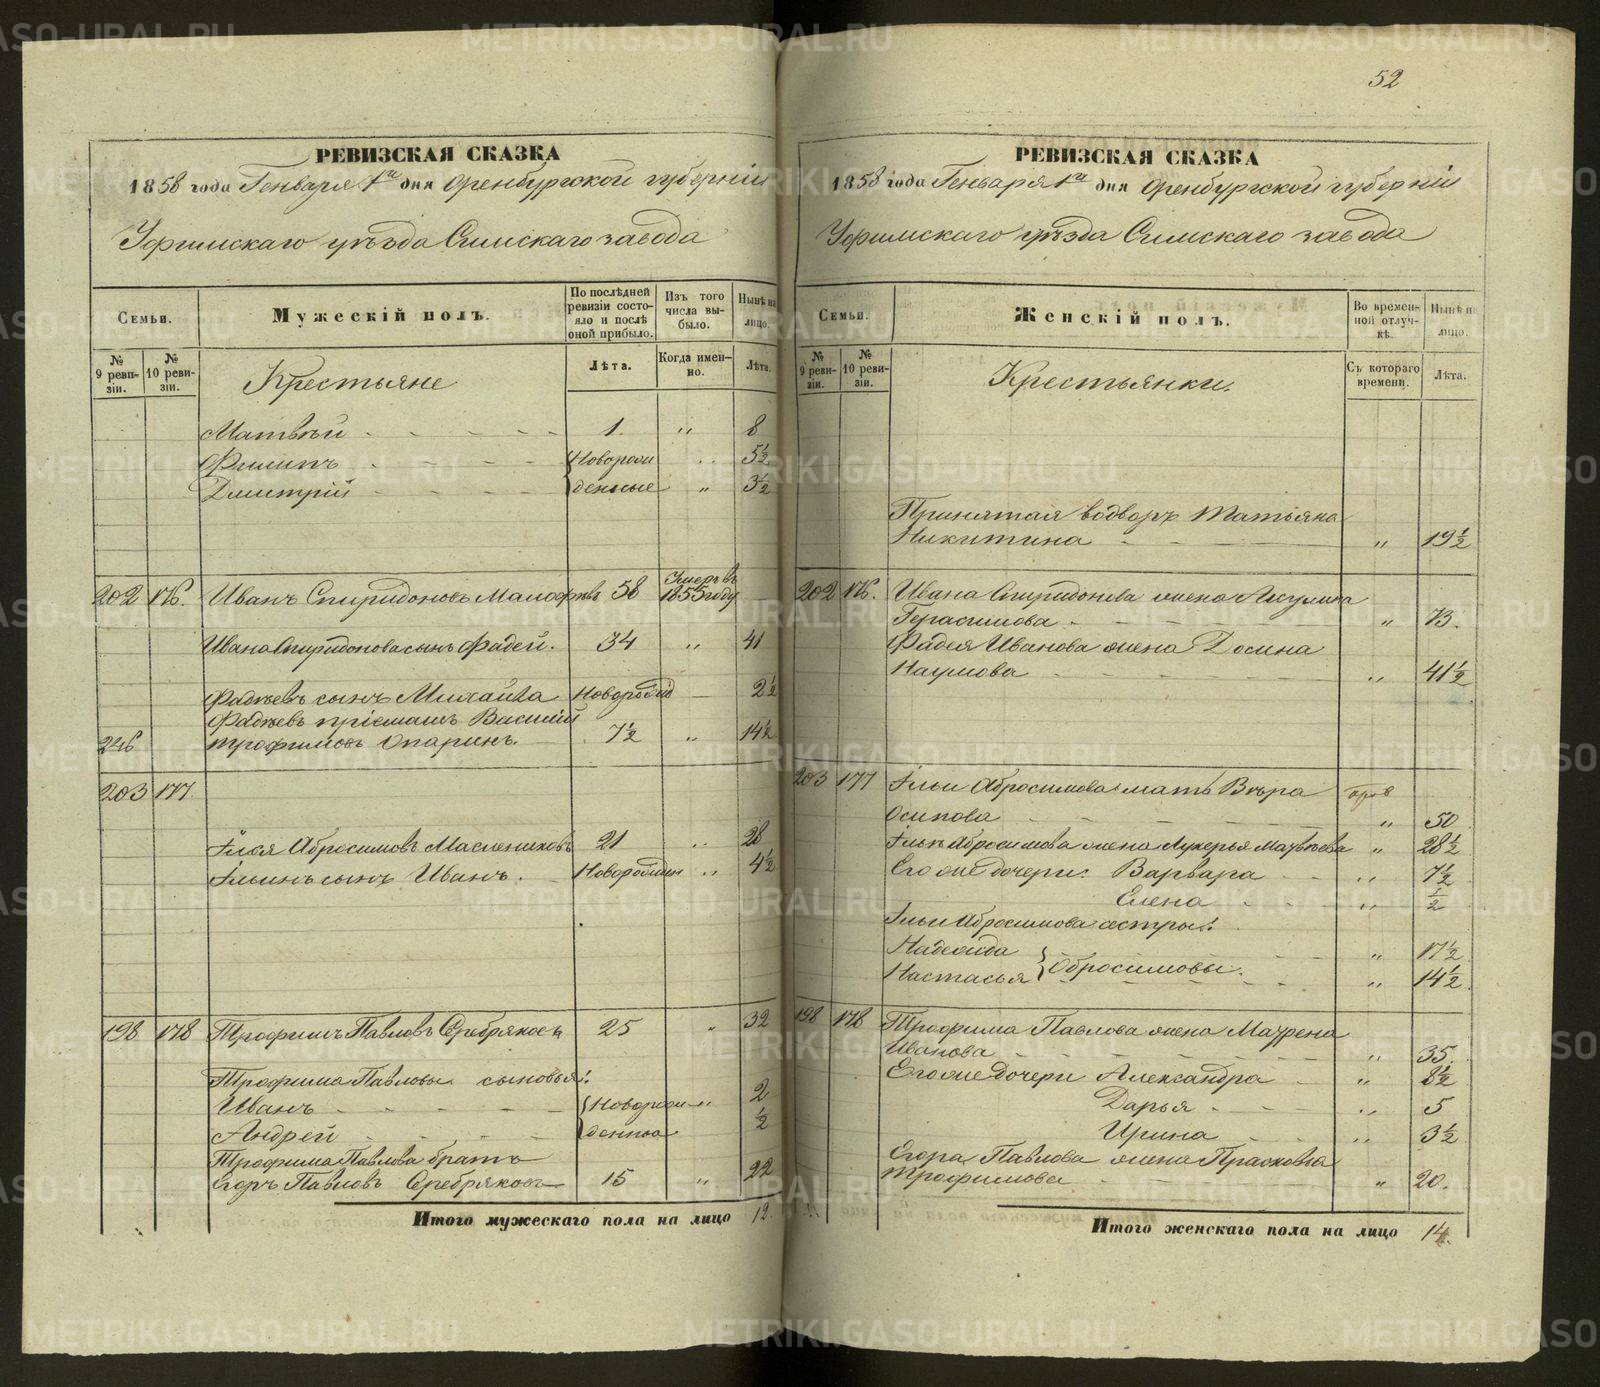 52
РЕВИЗСКАЯ СКАЗКА
1858 года Генваря 1го дня Оренбургской губерніи
Уфимскаго уѣзда Симскаго завода
Семьи.
Мужескій полъ.
По послѣдней ревизіи состояло и послѣ оной прибыло.
Изъ того числа выбыло.
Нынѣ на лицо.
№ 9 ревизіи.
№ 10 ревизіи.
Крестьяне
Лѣта.
Когда именно.
Лѣта.
Матвѣй - - - - - 1. " 8
Филипъ - - - - Новорож " 5½
Дмитрій - - - - денные " 3½
202 176. Иванъ Спиридоновъ 58 Умеръ въ 1855 году
Ивана Спиридонова сынъ Фадей. 34 " 41
Фадѣевъ сынъ Михайла Новорожд — 2½
Фадѣевъ пріемышъ Василій
246 Трофимовъ Опаринъ. 7½ " 14½
203 177
Илья Абросимовъ Маслениковъ 21 " 28
Ильинъ сынъ Иванъ. Новорожден " 4½
198 178 Трофимъ Павловъ Серебряковъ 25 " 32
Трофима Павлова сыновья:
Иванъ - - - - Новорож " 2
Андрей - - - - денные ½
Трофима Павлова братъ
Егоръ Павловъ Серебряковъ 15 " 22
Итого мужескаго пола на лицо 12.
РЕВИЗСКАЯ СКАЗКА
1858 года Генваря 1го дня Оренбургской губерніи
Уфимскаго уѣзда Симскаго завода
Семьи.
Женскій полъ.
Во временной отлучкѣ.
Нынѣ на лицо.
№ 9 ревизіи.
№ 10 ревизіи.
Крестьянки.
Съ котораго времени.
Лѣта.
Принятая водворъ Татьяна
Никитина - - - " 19½
202 176. Ивана Спиридонова жена Акулина
Герасимова - - - " 73.
Фадея Иванова жена Домна
Наумова - - - " 41½
203 177 Ильи Абросимова мать Вѣра
Осипова - - - " 50
Ильи Абросимова жена Лукерья Матвѣева " 28½
Его же дочери: Варвара - - " 7½
Елена - - " ½
Ильи Абросимова сестры:
Надежда - - " 17½
Настасья } Абросимовы. - " 14½
198 178 Трофима Павлова жена Маурена
Иванова - - - " 35.
Его же дочери Александра - " 8½
Дарья - - " 5
Ирина - - " 3½
Егора Павлова жена Прасковья
Трофимова - - - " 20.
Итого женскаго пола на лицо 14.
METRIKI.GASO-URAL.RU